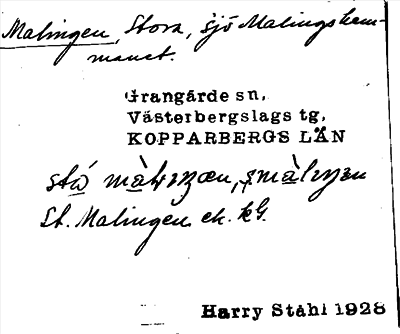 Malingen, Stora, sjö Malingshem-
manet.
Grangärde sn,
Västerbergslags tg,
KOPPARBERGS LÄN
stá
St. Malingen ek. kG.
Harry Ståhl 1928